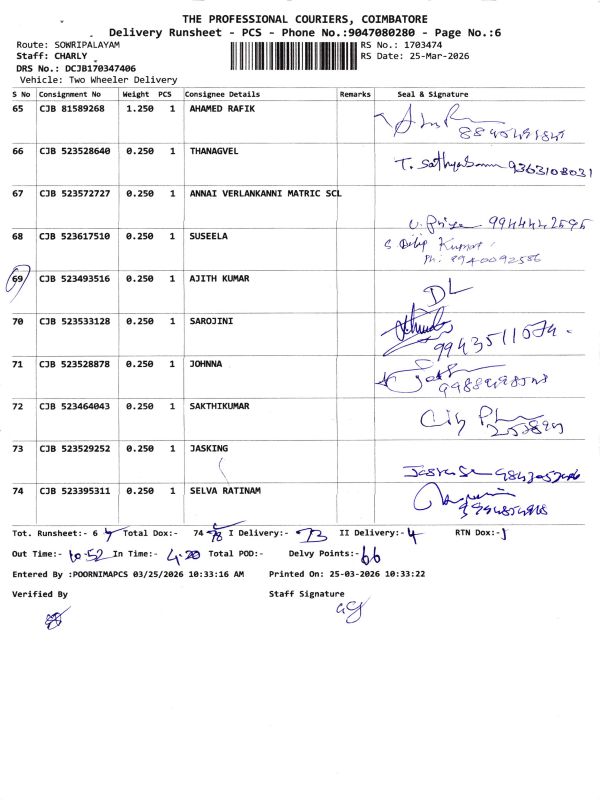 THE PROFESSIONAL COURIERS, COIMBATORE
Delivery Runsheet - PCS - Phone No.:9047080280 - Page No.:6
Route: SOWRIPALAYAM
RS No.: 1703474
Staff: CHARLY
RS Date: 25-Mar-2026
DRS No.: DCJB170347406
Vehicle: Two Wheeler Delivery
S No Consignment No Weight PCS Consignee Details Remarks Seal & Signature
65 CJB 81589268 1.250 1 AHAMED RAFIK
66 CJB 523528640 0.250 1 THANAGVEL
T. Sathyabama 9363108031
67 CJB 523572727 0.250 1 ANNAI VERLANKANNI MATRIC SCL
U. Priya 9944442595
68 CJB 523617510 0.250 1 SUSEELA
S Dilip Kumar
Ph: 8940092586
69 CJB 523493516 0.250 1 AJITH KUMAR
DL
70 CJB 523533128 0.250 1 SAROJINI
9943511074.
71 CJB 523528878 0.250 1 JOHNNA
72 CJB 523464043 0.250 1 SAKTHIKUMAR
73 CJB 523529252 0.250 1 JASKING
74 CJB 523395311 0.250 1 SELVA RATINAM
Tot. Runsheet:- 6 Total Dox:- 74 I Delivery:- 73 II Delivery:- 4 RTN Dox:- 1
Out Time:- 10.52 In Time:- 4.20 Total POD:- Delvy Points:- 66
Entered By :POORNIMAPCS 03/25/2026 10:33:16 AM Printed On: 25-03-2026 10:33:22
Verified By Staff Signature